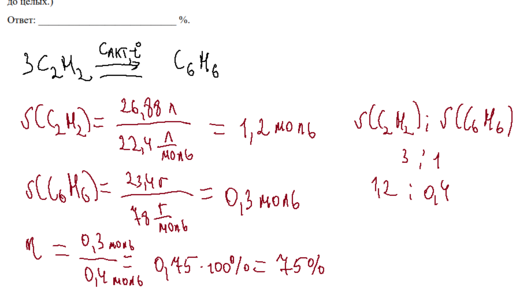 до целых.)
Ответ: ______________________________ %.
3C₂H₂ Cакт, t° ⇄ C₆H₆
υ(C₂H₂) = 26,88 л / 22,4 л/моль = 1,2 моль υ(C₂H₂) : υ(C₆H₆)
3 : 1
υ(C₆H₆) = 23,4 г / 78 г/моль = 0,3 моль 1,2 : 0,4
η = 0,3 моль / 0,4 моль = 0,75 · 100% = 75%